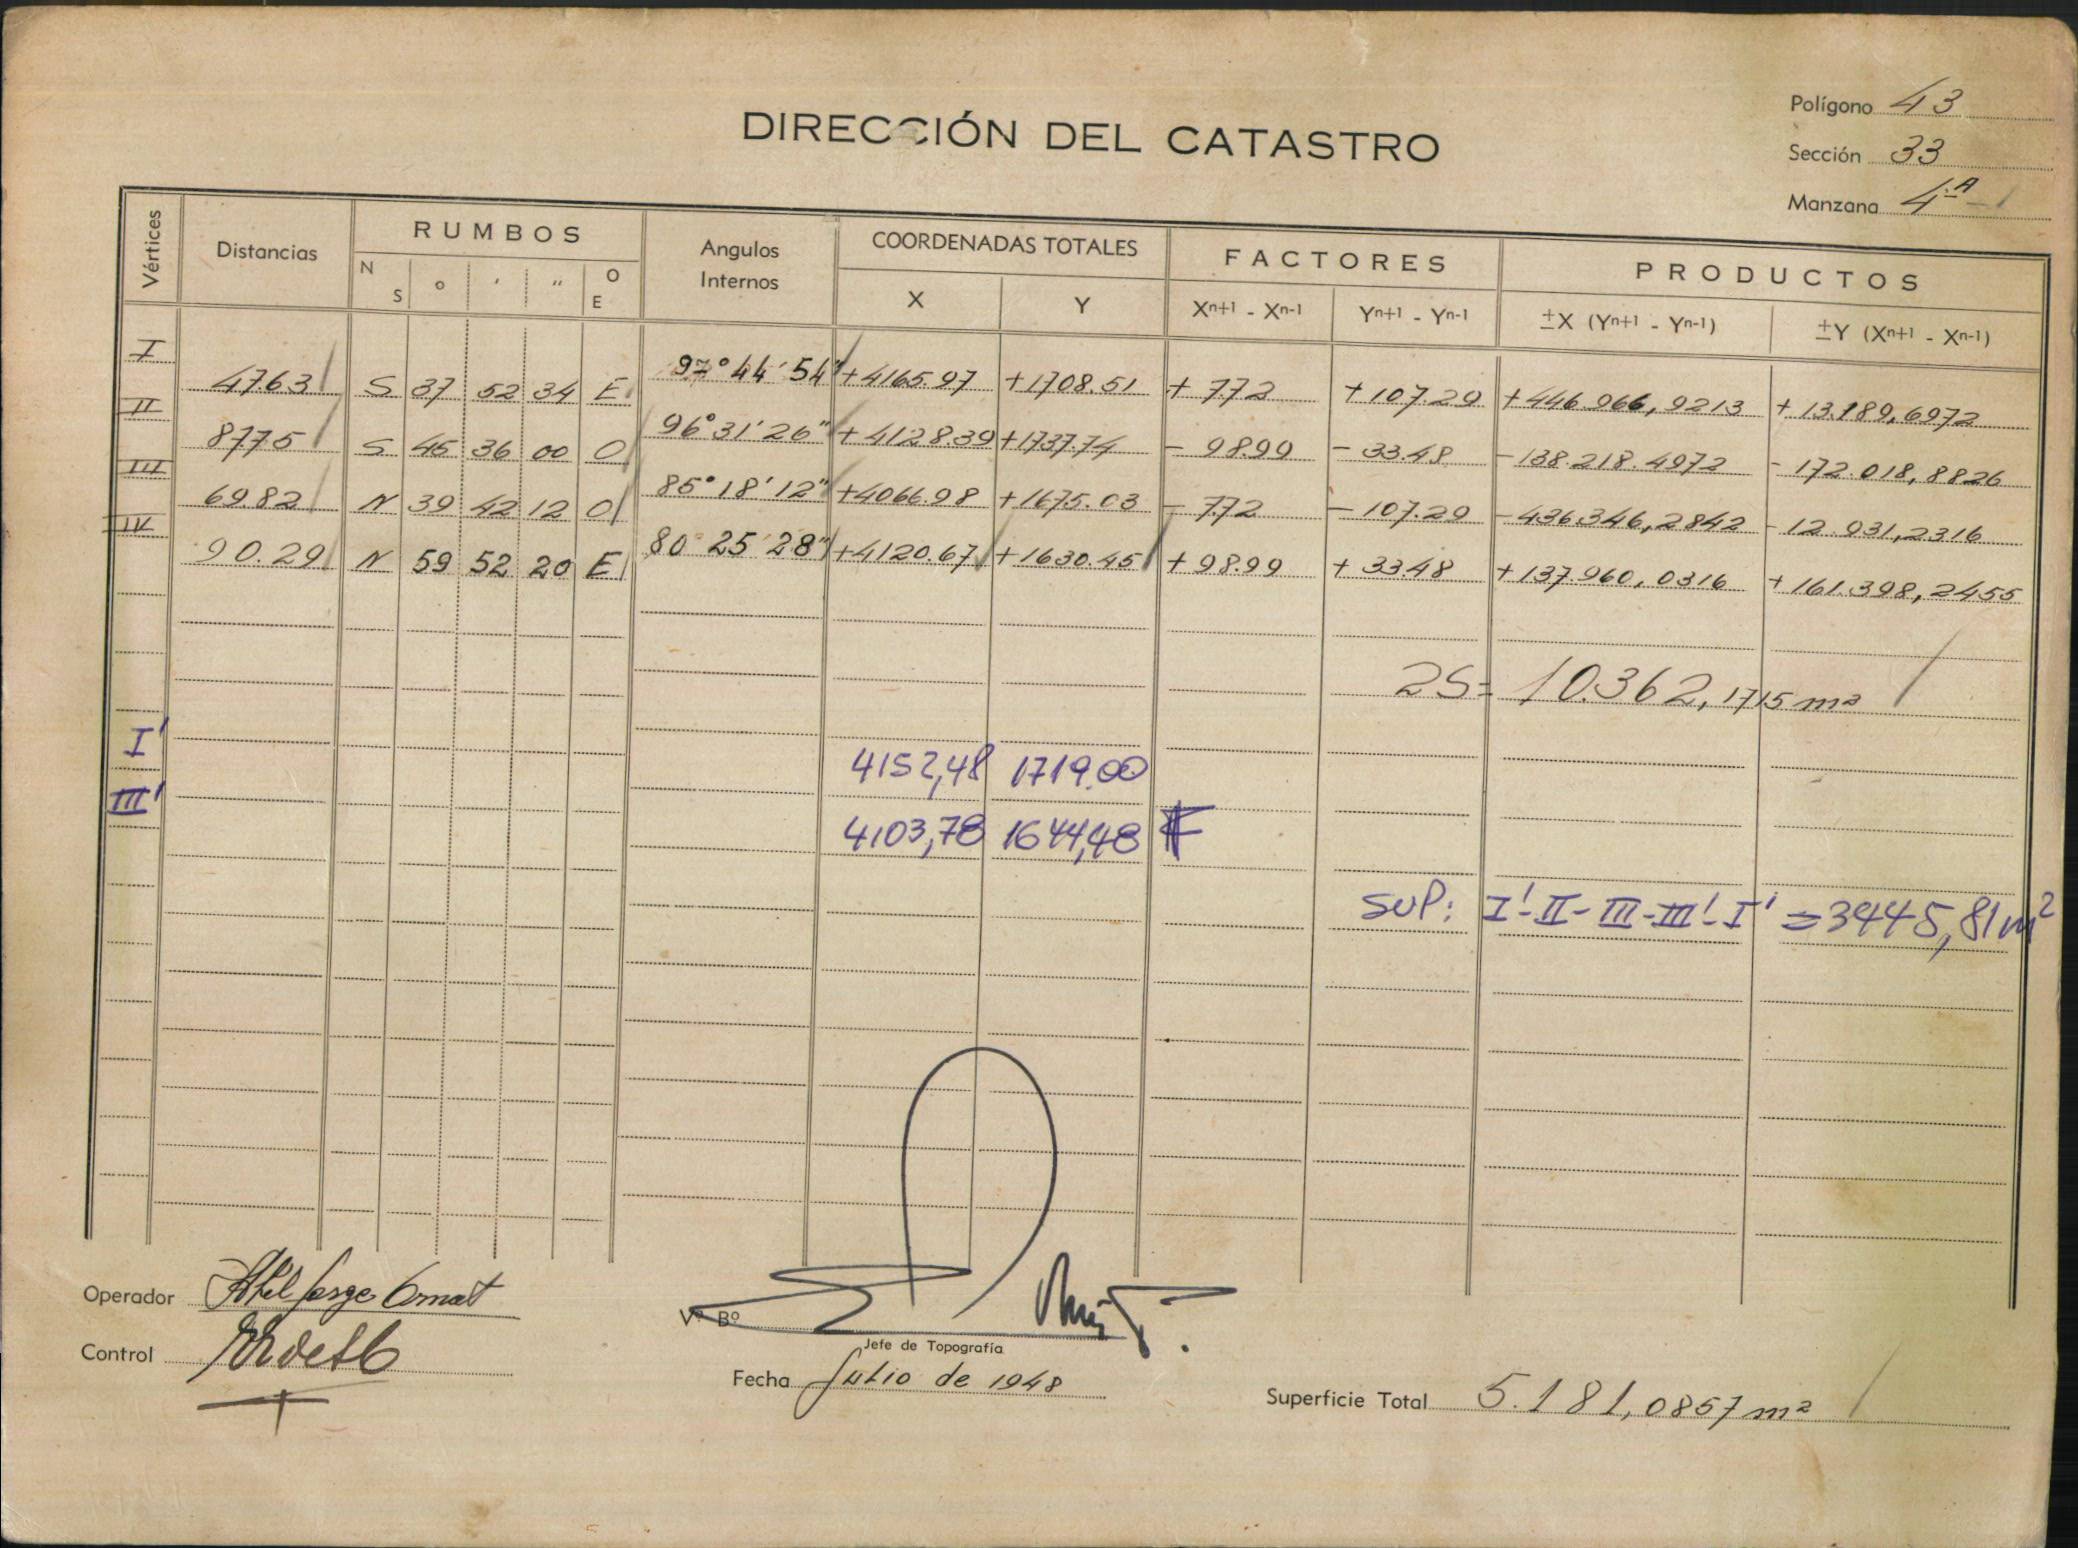 DIRECCIÓN DEL CATASTRO
Polígono 43
Sección 33
Manzana 4.ª - 1
Vértices Distancias RUMBOS Angulos Internos COORDENADAS TOTALES FACTORES PRODUCTOS
N S ° ' " O E X Y Xn+1 - Xn-1 Yn+1 - Yn-1 ±X (Yn+1 - Yn-1) ±Y (Xn+1 - Xn-1)
I
47.63 S 37 52 34 E 97° 44' 54" +4165.97 +1708.51 + 7.72 + 107.29 +446.966,9213 + 13.189,6972
II
87.75 S 45 36 00 O 96° 31' 26" +4128.39 +1737.74 - 98.99 - 33.48 -138.218.4972 - 172.018,8826
III
69.82 N 39 42 12 O 85° 18' 12" +4066.98 +1675.03 - 7.72 - 107.29 -436.346,2842 - 12.931,2316
IV
90.29 N 59 52 20 E 80 25 28" +4120.67 +1630.45 + 98.99 + 33.48 +137.960,0316 + 161.398,2455
2S= 10.362,1715 m²
I' 4152,48 1719.00
III' 4103,78 1644,48
SUP: I'-II-III-III'-I' = 3445,81 m²
Operador
Control
Vº Bº
Jefe de Topografía
Fecha Julio de 1948
Superficie Total 5.181,0857 m²